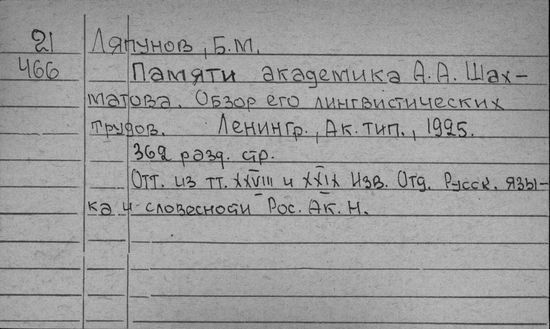 21 Ляпунов, Б.М.
466 Памяти академика А.А. Шах-
матова. Обзор его лингвистических
трудов. Ленингр., Ак. тип., 1925.
362 разд. стр.
Отт. из тт. XXVIII и XXIX Изв. Отд. Русск. язы-
ка и словесности Рос. Ак. Н.